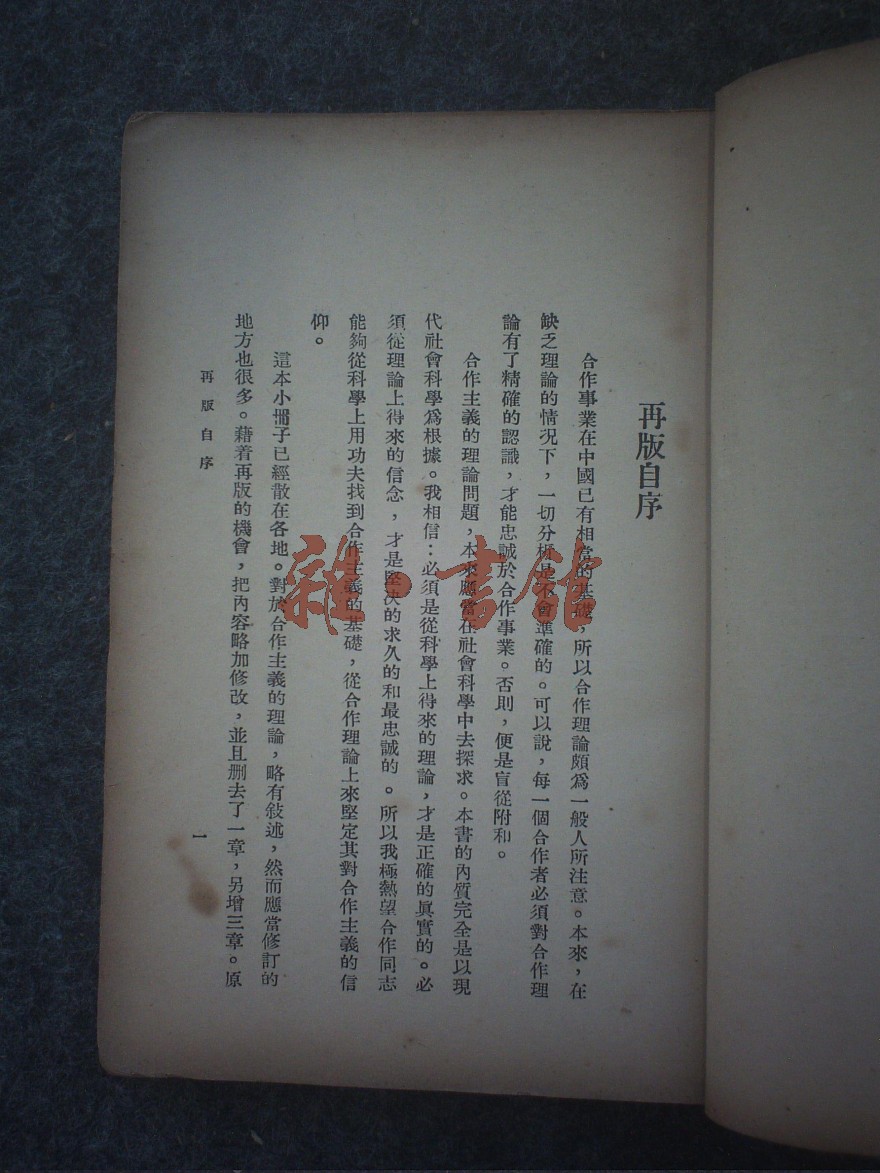 再版自序
合作事業在中國已有相當的基礎，所以合作理論頗爲一般人所注意。本來，在
缺乏理論的情况下，一切分析是不會準確的。可以說，每一個合作者必須對合作理
論有了精確的認識，才能忠誠於合作事業。否則，便是盲從附和。
合作主義的理論問題，本來應當在社會科學中去探求。本書的內質完全是以現
代社會科學爲根據。我相信：必須是從科學上得來的理論，才是正確的眞實的。必
須從理論上得來的信念，才是堅決的求久的和最忠誠的。所以我極熱望合作同志
能夠從科學上用功夫找到合作主義的基礎，從合作理論上來堅定其對合作主義的信
仰。
這本小冊子已經散在各地。對於合作主義的理論，略有敍述，然而應當修訂的
地方也很多。藉着再版的機會，把內容略加修改，並且删去了一章，另增三章。原
再版自序
一
雜·書館